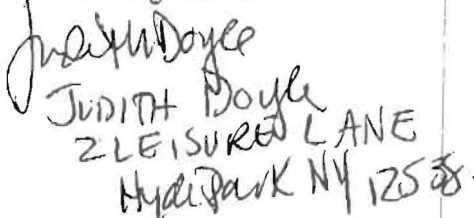 Judith Doyle
JUDITH Doyle
2 LEISURE LANE
Hyde Park NY 12538